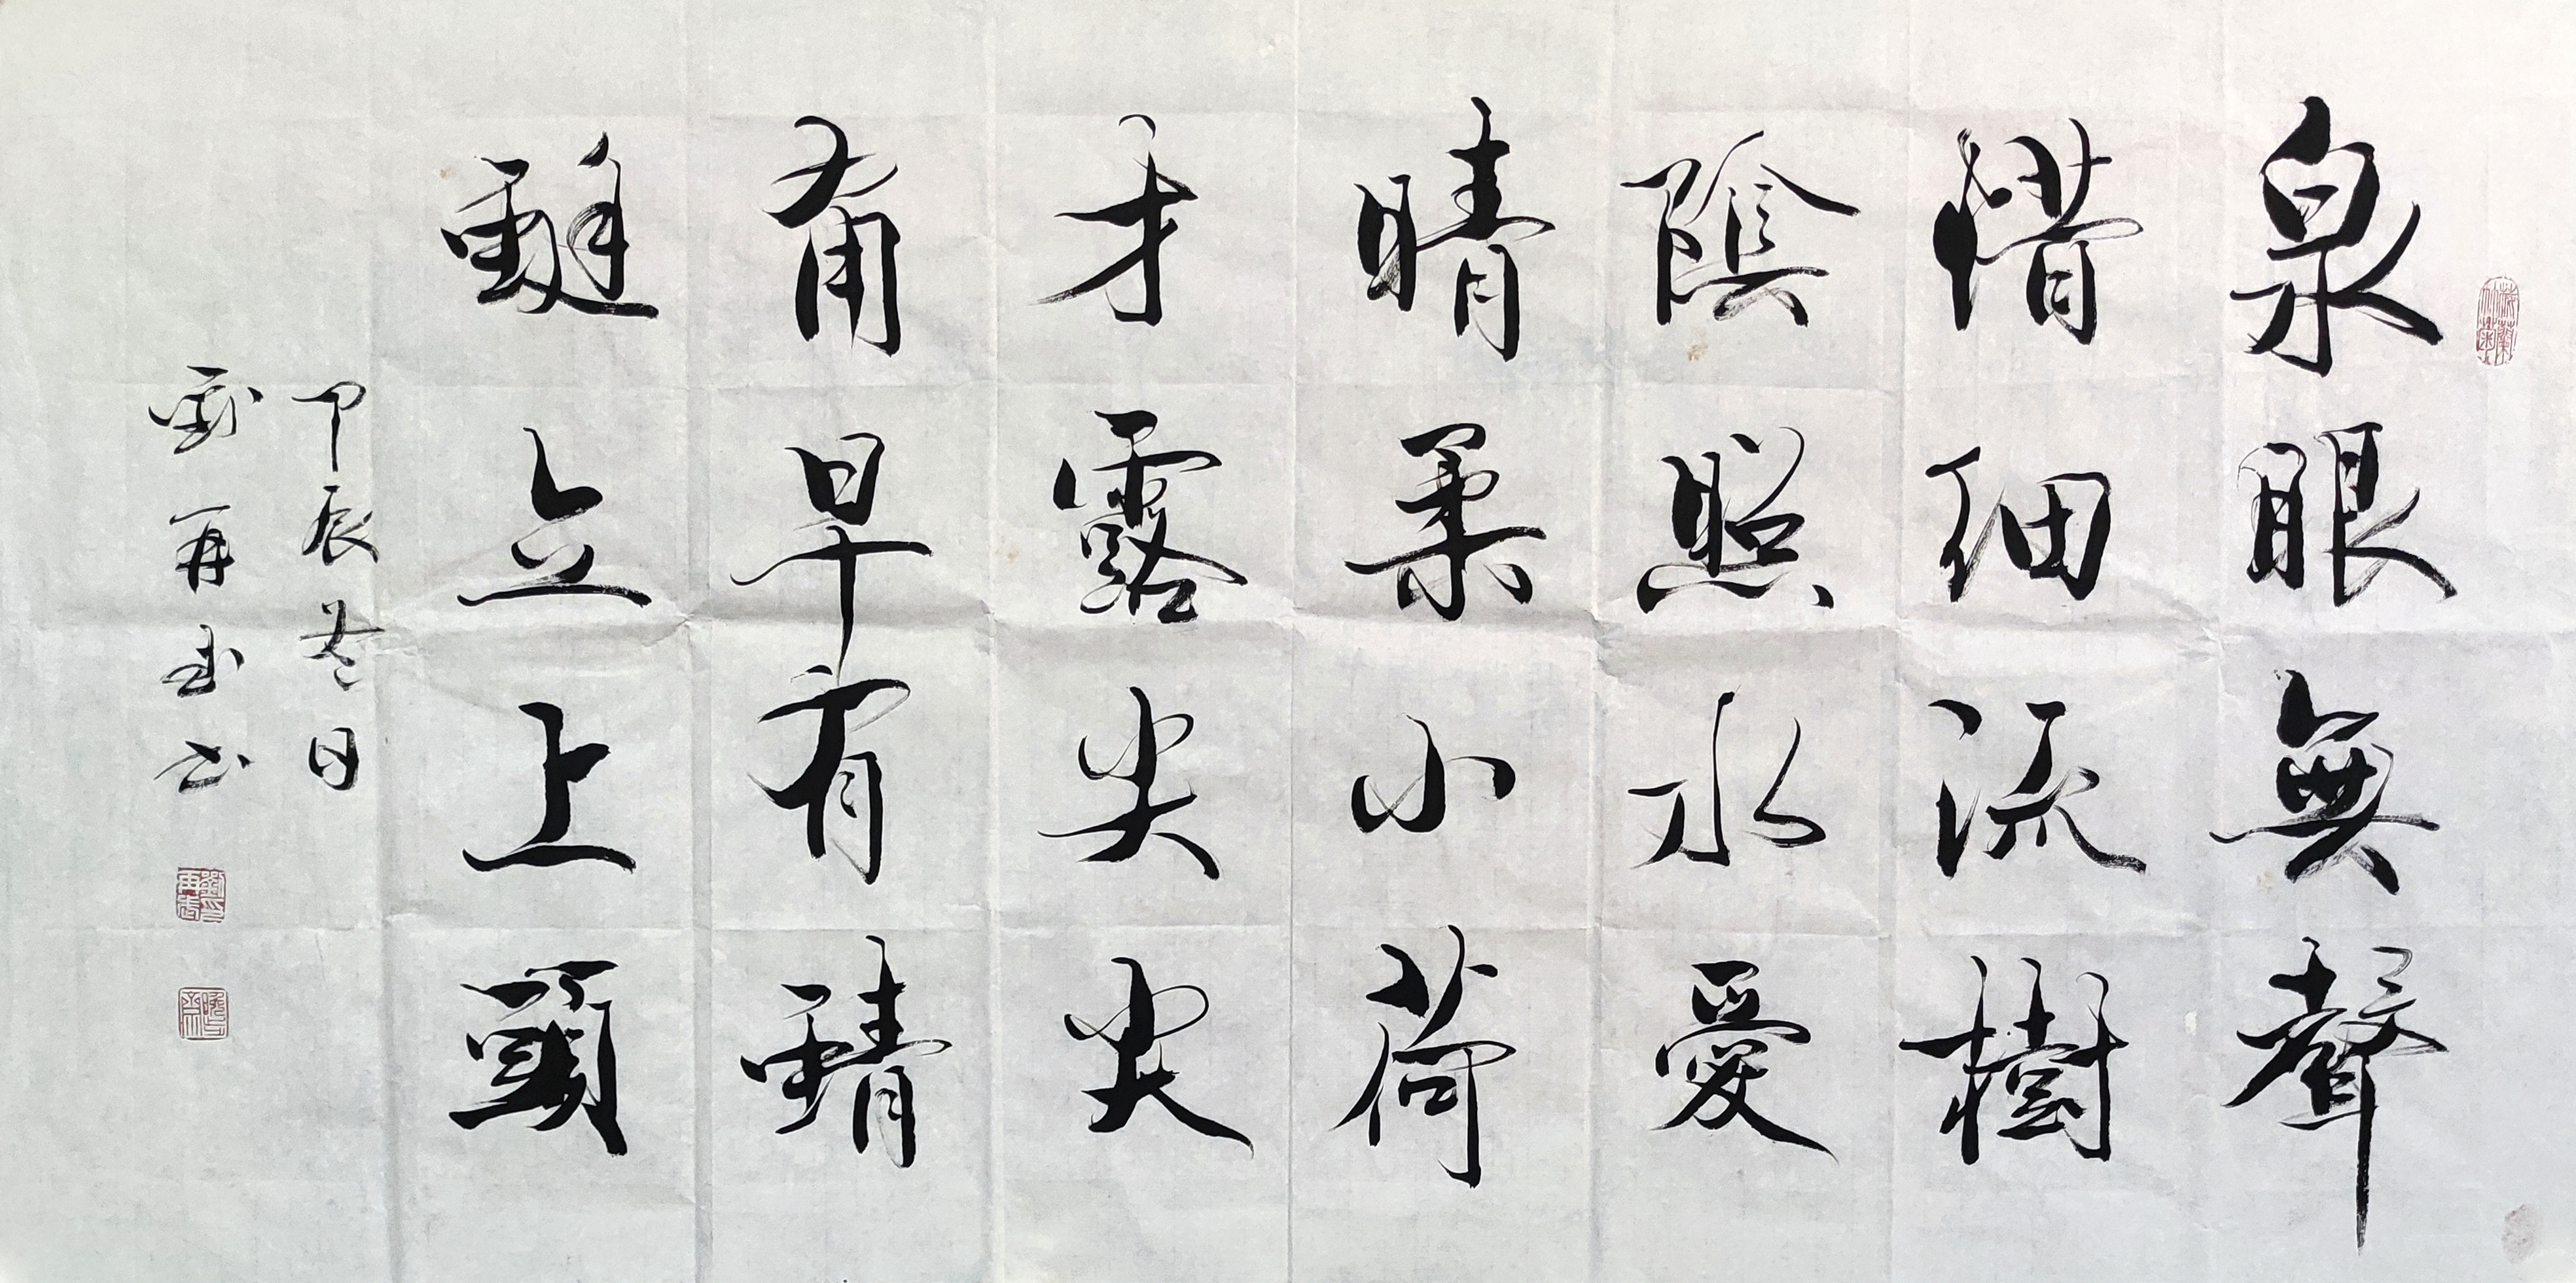 泉眼無聲
惜細流樹
陰照水愛
晴柔小荷
才露尖尖
角早有蜻
蜓立上頭
甲辰冬日
劉再武书